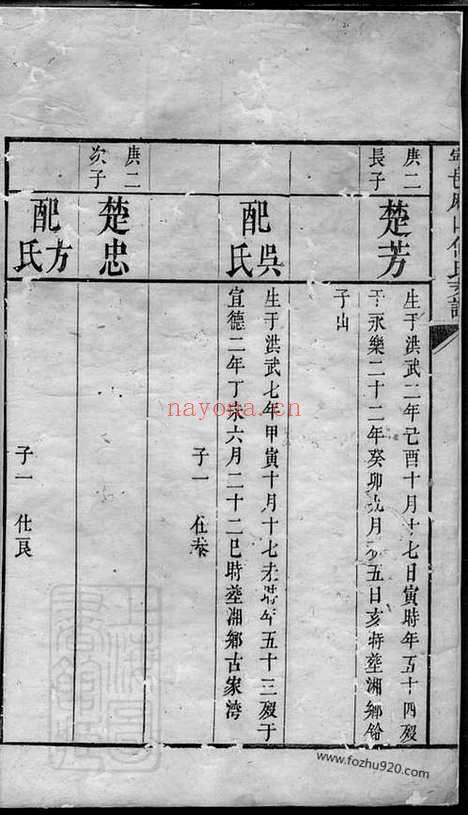 庚二
長子
楚芳
生于洪武二年己酉十月十七日寅時年五十四歿
于永樂二十二年癸卯九月初五日亥時塟湘鄉鉛
子山
配吳氏
生于洪武七年甲寅十月十七未時年五十三歿于
宣德二年丁未六月二十二巳時塟湘鄉古家湾
子一 仕泰
庚二
次子
楚忠
配方氏
子一 仕良
nayona.cn
www.fozhu920.com